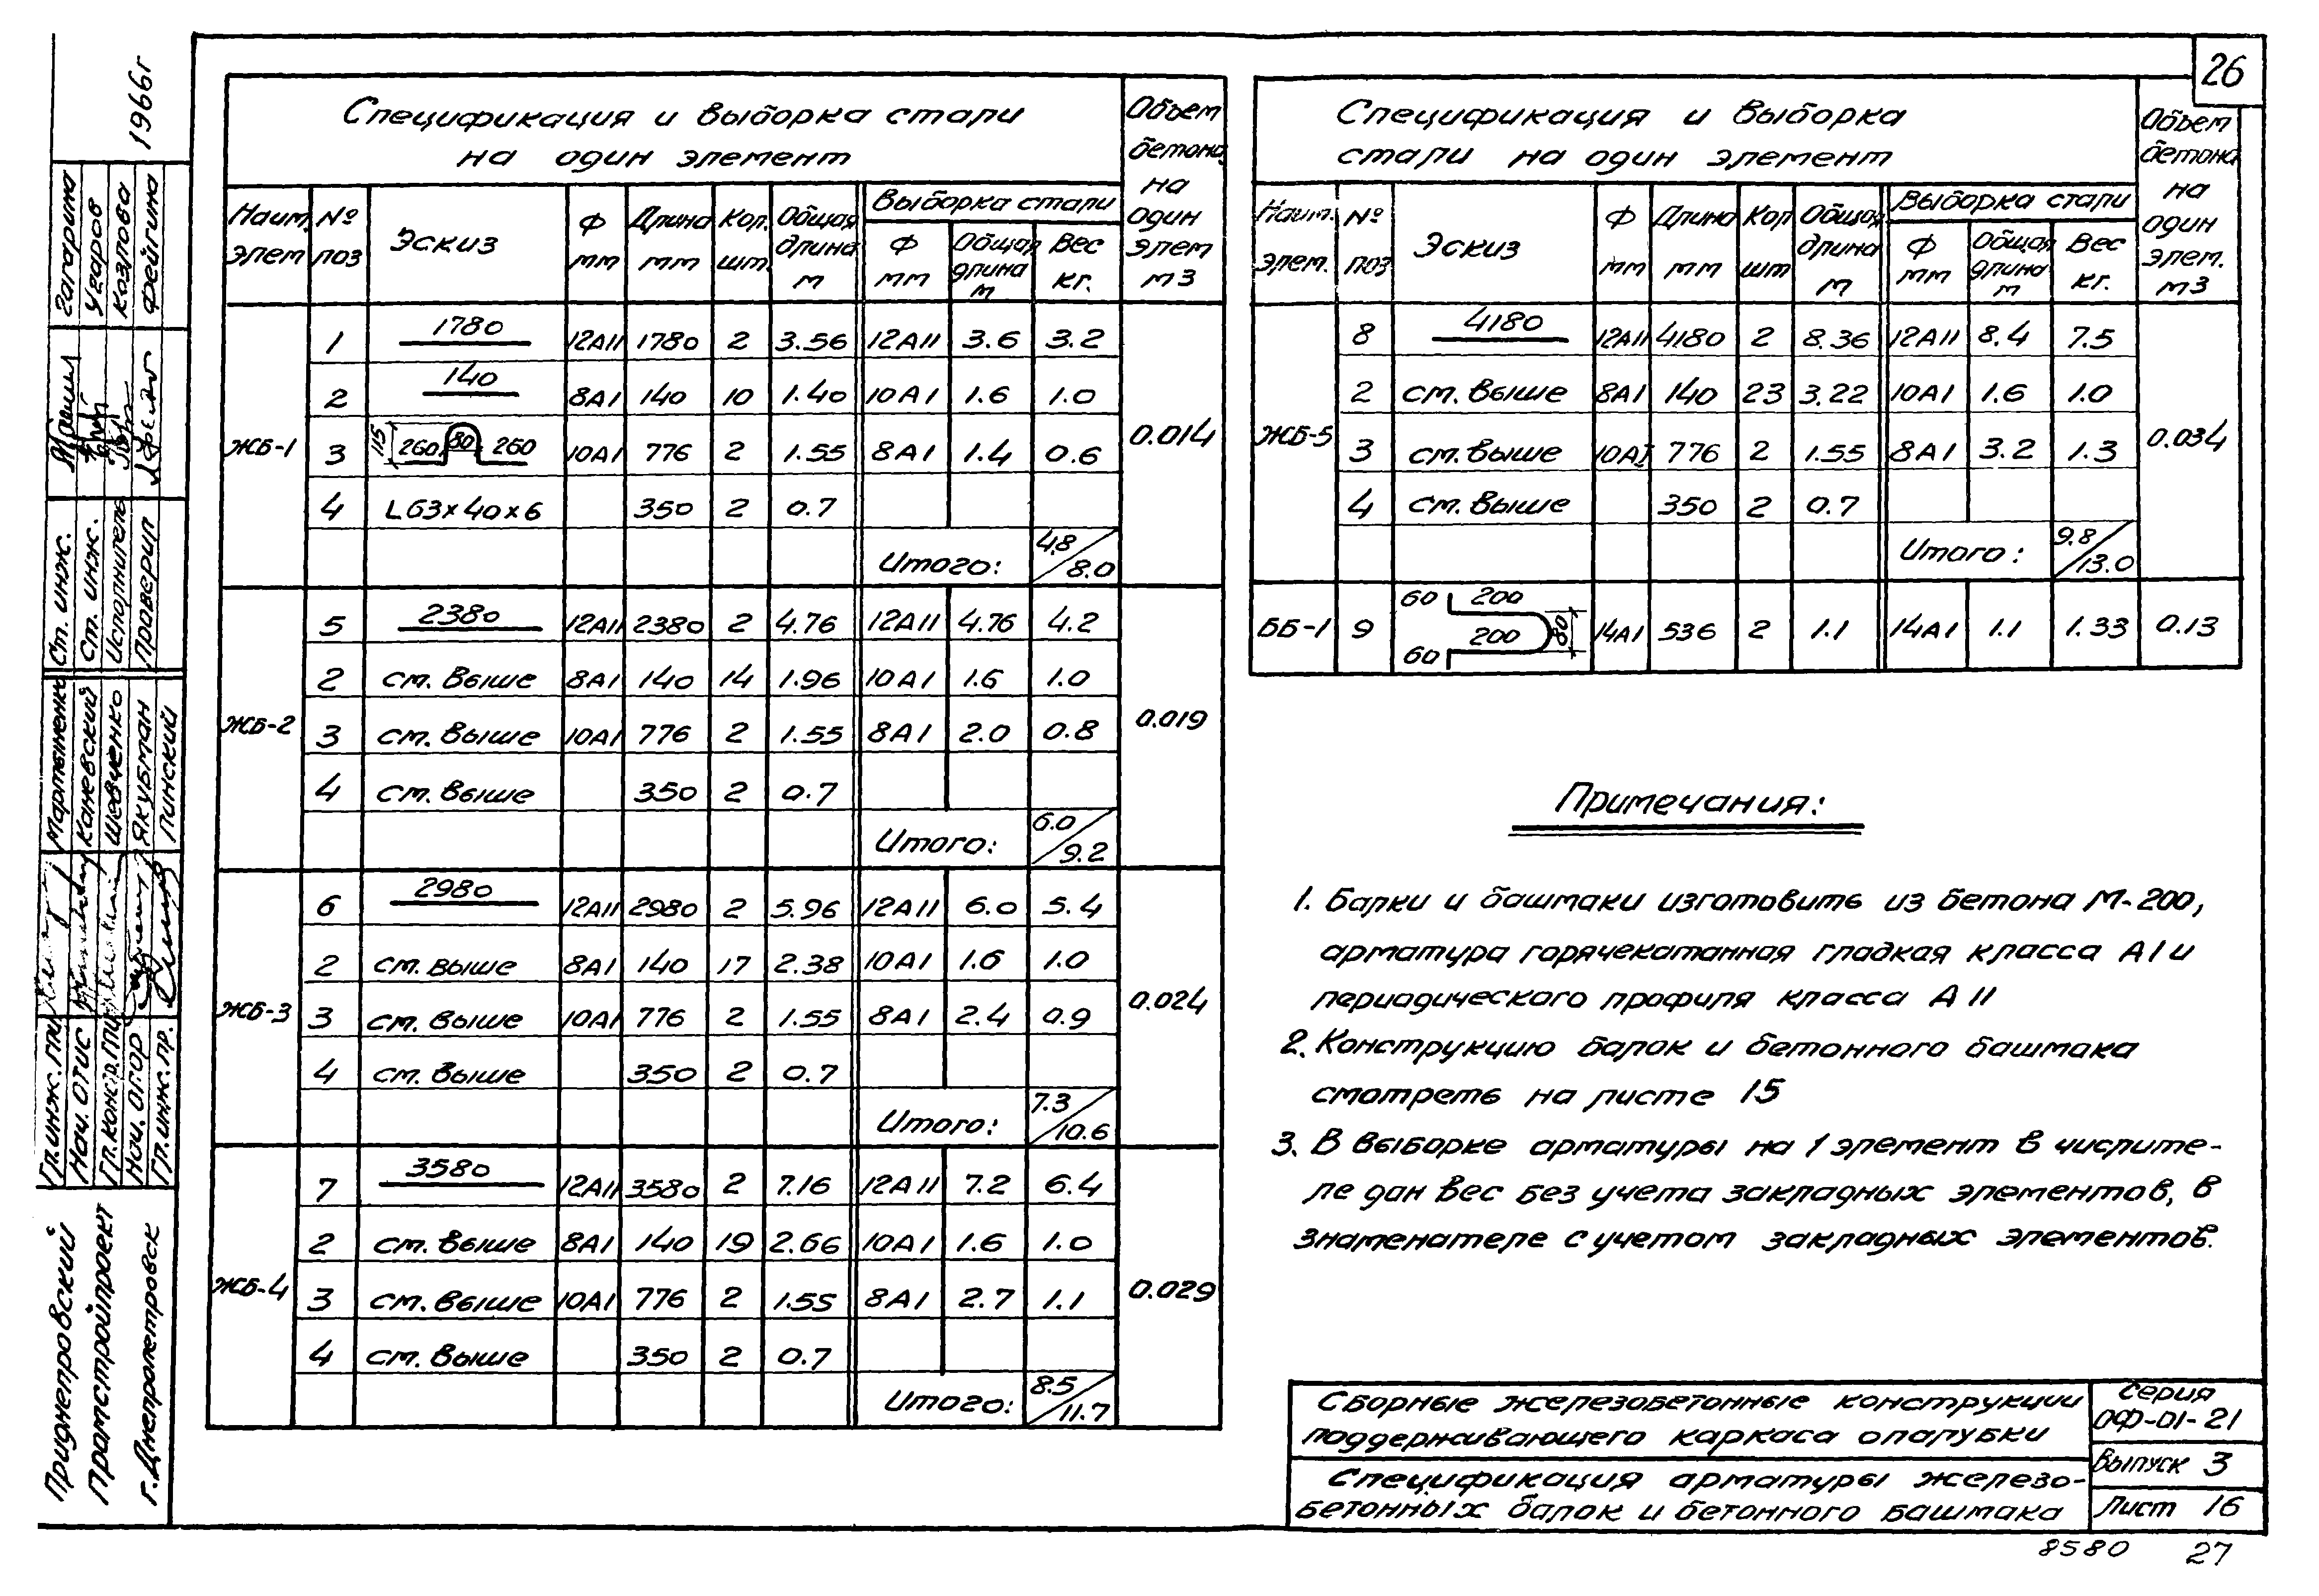 26
Спецификация и выборка стали
на один элемент
Объем бетона на один элем м3
Наим. элем № поз Эскиз Ф мм Длина мм Кол. шт. Общая длина м Выборка стали Ф мм Общая длина м Вес кг.
ЖБ-1 0.014
1 1780 12АII 1780 2 3.56 12АII 3.6 3.2
2 140 8АI 140 10 1.40 10АI 1.6 1.0
3 115 260 80 260 10АI 776 2 1.55 8АI 1.4 0.6
4 L63×40×6 350 2 0.7
Итого: 4.8/8.0
ЖБ-2 0.019
5 2380 12АII 2380 2 4.76 12АII 4.76 4.2
2 см. выше 8АI 140 14 1.96 10АI 1.6 1.0
3 см. выше 10АI 776 2 1.55 8АI 2.0 0.8
4 см. выше 350 2 0.7
Итого: 6.0/9.2
ЖБ-3 0.024
6 2980 12АII 2980 2 5.96 12АII 6.0 5.4
2 см. выше 8АI 140 17 2.38 10АI 1.6 1.0
3 см. выше 10АI 776 2 1.55 8АI 2.4 0.9
4 см. выше 350 2 0.7
Итого: 7.3/10.6
ЖБ-4 0.029
7 3580 12АII 3580 2 7.16 12АII 7.2 6.4
2 см. выше 8АI 140 19 2.66 10АI 1.6 1.0
3 см. выше 10АI 776 2 1.55 8АI 2.7 1.1
4 см. выше 350 2 0.7
Итого: 8.5/11.7
Спецификация и выборка
стали на один элемент
Объем бетона на один элем. м3
Наим. элем. № поз Эскиз Ф мм Длина мм Кол шт Общая длина м Выборка стали Ф мм Общая длина м Вес кг.
ЖБ-5 0.034
8 4180 12АII 4180 2 8.36 12АII 8.4 7.5
2 см. выше 8АI 140 23 3.22 10АI 1.6 1.0
3 см. выше 10АI 776 2 1.55 8АI 3.2 1.3
4 см. выше 350 2 0.7
Итого: 9.8/13.0
ББ-1 9 60 200 200 60 80 14АI 536 2 1.1 14АI 1.1 1.33 0.13
Примечания:
1. Балки и башмаки изготовить из бетона М-200,
арматура горячекатанная гладкая класса АI и
периодического профиля класса АII
2. Конструкцию балок и бетонного башмака
смотреть на листе 15
3. В выборке арматуры на 1 элемент в числите-
ле дан вес без учета закладных элементов, в
знаменателе с учетом закладных элементов.
Сборные железобетонные конструкции
поддерживающего каркаса опалубки
Серия
ОФ-01-21
Выпуск 3
Спецификация арматуры железо-
бетонных балок и бетонного башмака
Лист 16
8580 27
Приднепровский
Промстройпроект
г. Днепропетровск
Гл. инж. ПИ Мартыненко Ст. инж. Гагарина
Нач. ОТИС Каневский Ст. инж. Угаров
Гл. констр. ПИ Шевченко Исполнитель Козлова
Нач. ОГОР Якубман Проверил Фейгина 1966г
Гл. инж. пр. Пинский